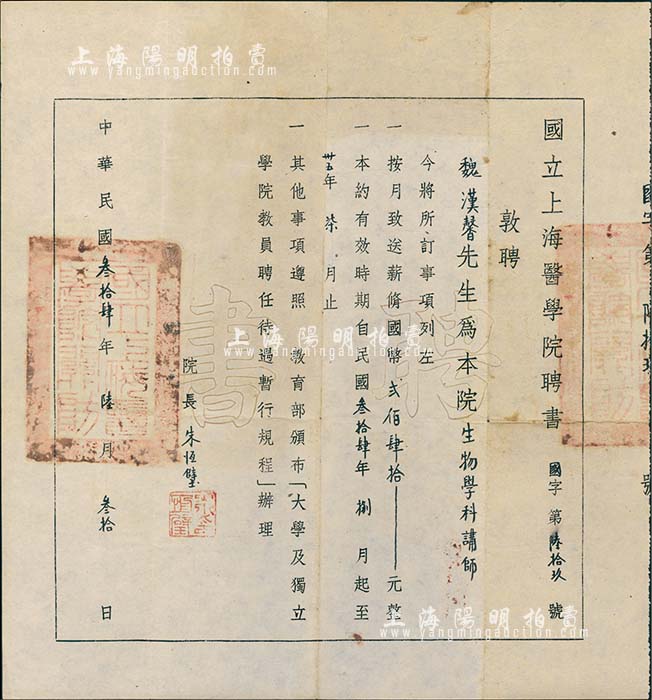 國立上海醫學院聘書 國字第陸拾玖號
敦聘
魏漢馨先生爲本院生物學科講師
今將所訂事項列左
一按月致送薪脩國幣貳佰肆拾——元整
一本約有效時期自民國叁拾肆年捌月起至
卅五年柒月止
一其他事項遵照教育部頒布「大學及獨立
學院教員聘任待遇暫行規程」辦理
院長朱恒璧
中華民國叁拾肆年陸月叁拾日
聘書
上海陽明拍賣
www.yangmingauction.com
上海陽明拍賣
www.yangmingauction.com
上海陽明拍賣
www.yangmingauction.com